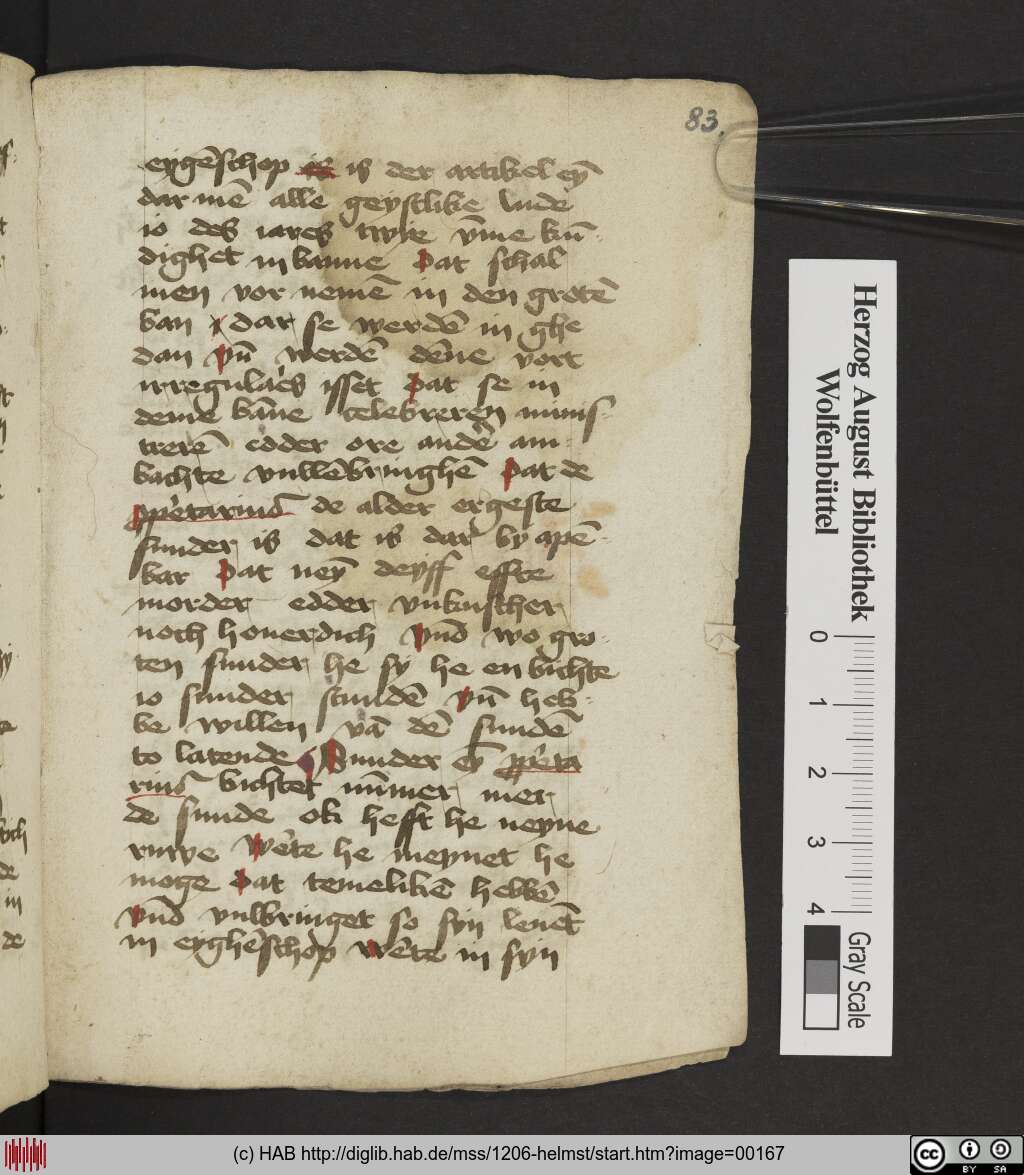 83.
eygēschop is is der artikel eȳ
dar mē alle geystlike lude
io des iares twie v̄me kū-
dighet in banne Dat schal
men vor nemē in den grotē
ban dar se werdē in ghe
dan vn̄ werdē dēne vort
irregulares isset Dat se in
deme bāne celebreren minis-
trerē edder ore andē am-
bachte vullēbringhē Dat de
ꝓpetarius de alder ergeste
sunder is dat is dar by apē-
bar Dat neȳ deyff effte
morder edder vnkuscher
noch houerdich vn̄d wo gro-
ten sunder he sy he en bichte
io sunder stundē vn̄ heb-
be willen vā dē sundē
to latende Sunder eȳ ꝓpeta
rius bichtet nūmer mer
de sunde ok hefft he neyne
ruwe Wēte he meynet he
moge Dat temelikē hebbē
vn̄d vulbringet so syn leuēt
in eyghēschop wēte in syn
Herzog August Bibliothek
Wolfenbüttel
0 1 2 3 4
Gray Scale
(c) HAB http://diglib.hab.de/mss/1206-helmst/start.htm?image=00167
cc BY SA